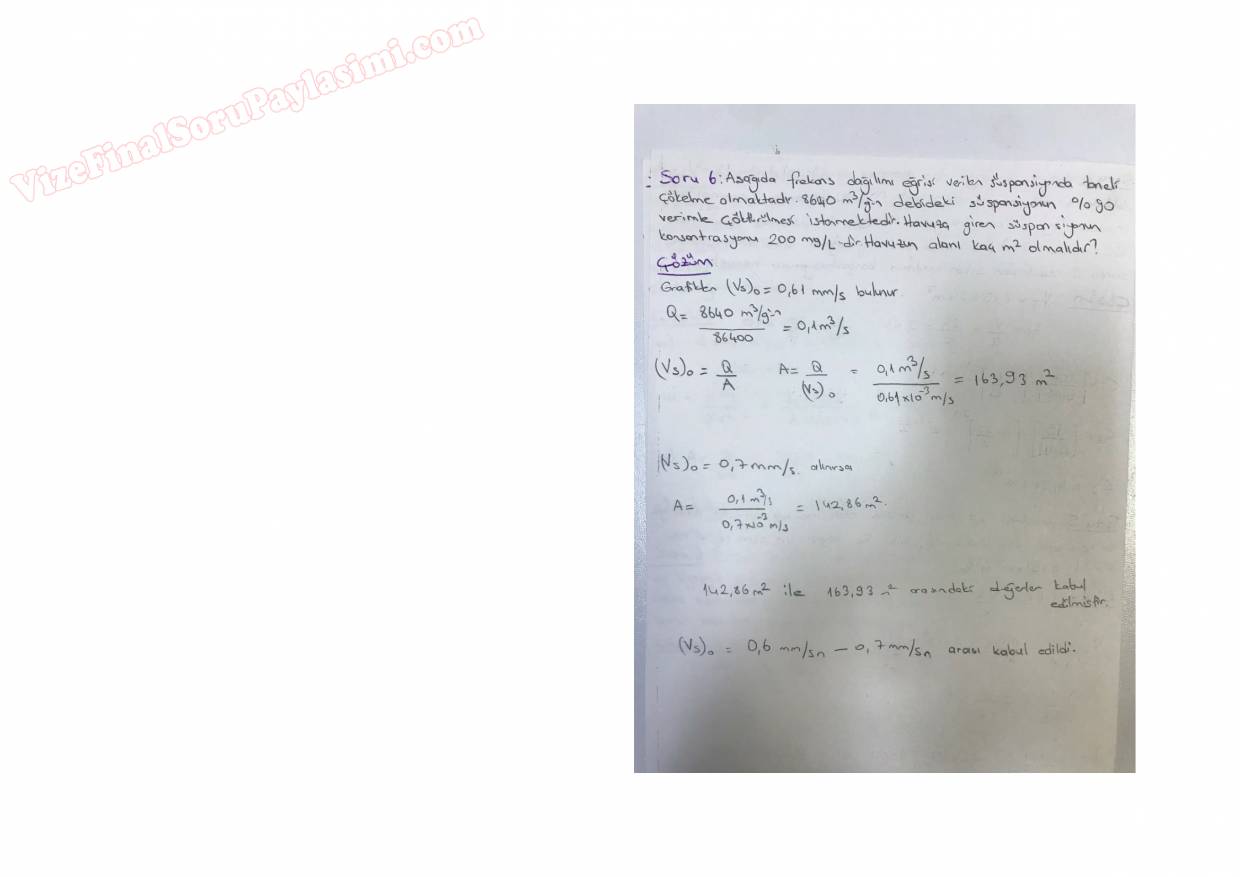 VizeFinalSoruPaylasimi.com
Soru 6: Aşağıda frekans dağılımı eğrisi verilen süspansiyonda taneli
çökelme olmaktadır. 8640 m³/gün debideki süspansiyonun %90
verimle çöktürülmesi istenmektedir. Havuza giren süspansiyonun
konsantrasyonu 200 mg/L dir. Havuzun alanı kaç m² olmalıdır?
Çözüm
Grafikten (Vs)₀ = 0,61 mm/s bulunur.
Q = 8640 m³/gün / 86400 = 0,1 m³/s
(Vs)₀ = Q / A A = Q / (Vs)₀ = 0,1 m³/s / 0,61x10⁻³ m/s = 163,93 m²
(Vs)₀ = 0,7 mm/s. alınırsa
A = 0,1 m³/s / 0,7x10⁻³ m/s = 142,86 m².
142,86 m² ile 163,93 m² arasındaki değerler kabul
edilmiştir.
(Vs)₀ = 0,6 mm/sn – 0,7 mm/sn arası kabul edildi.